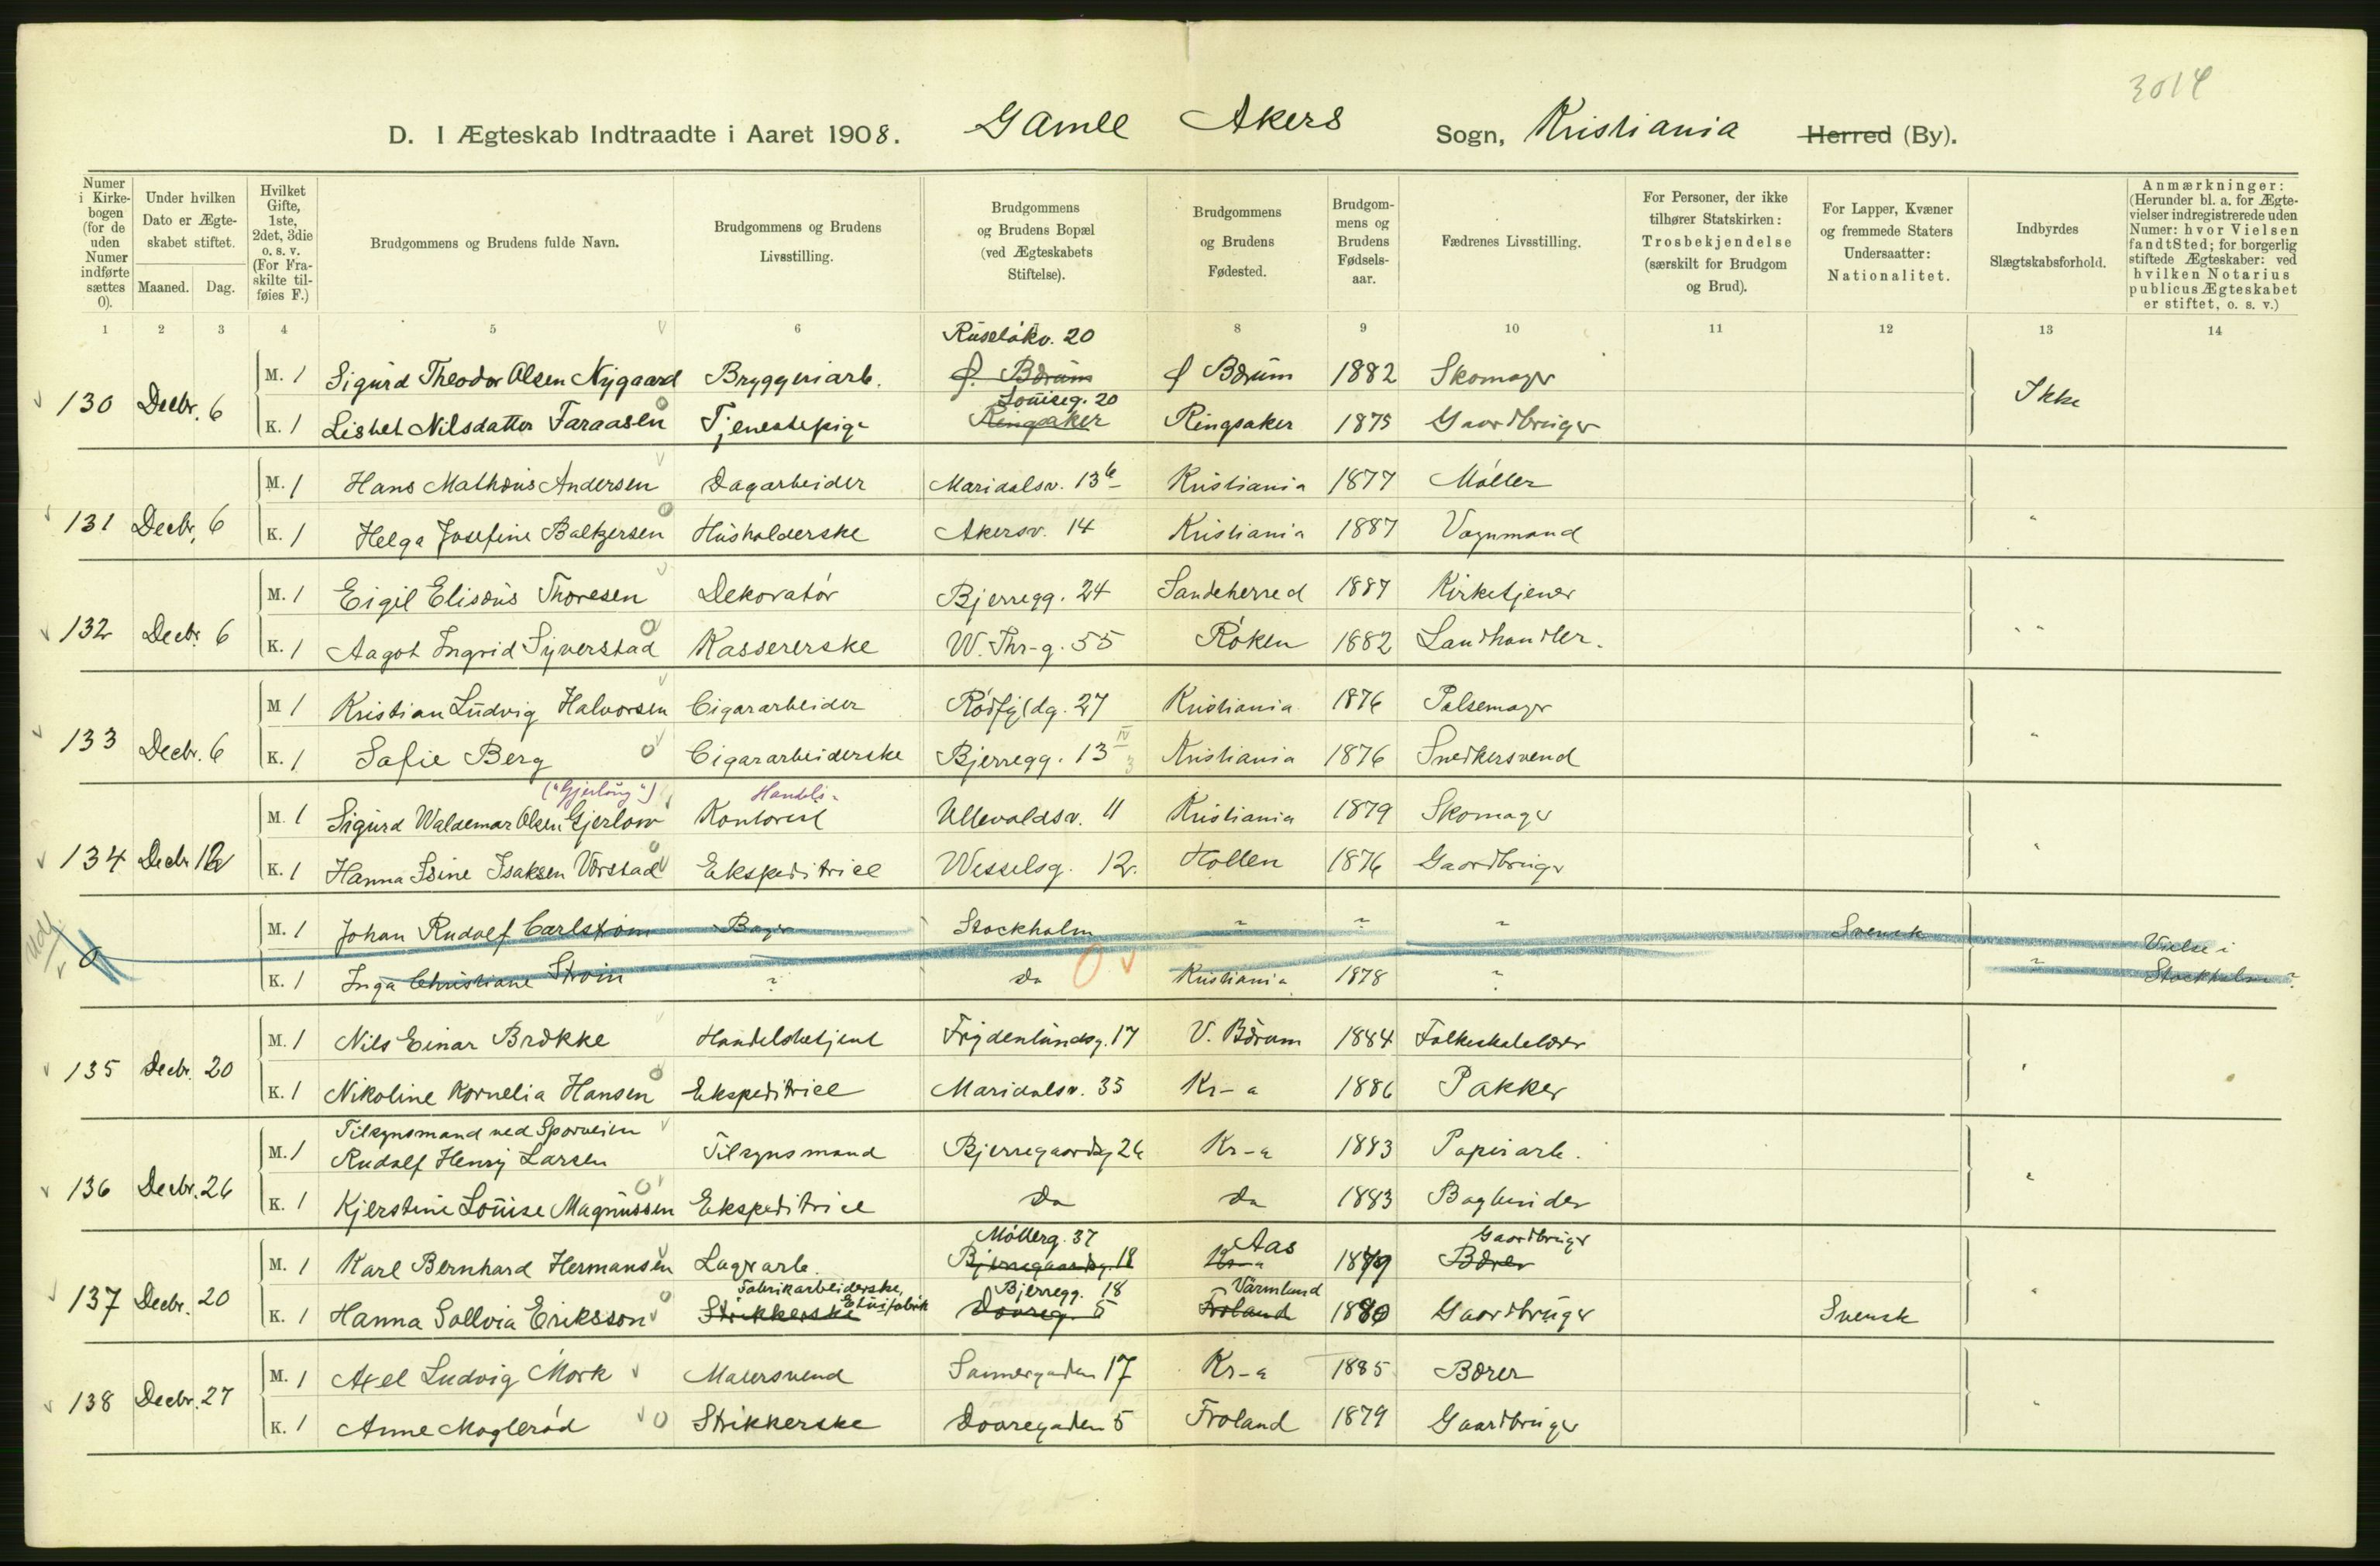 3014
D. I Ægteskab Indtraadte i Aaret 1908. Gamle Akers Sogn, Kristiania Herred (By).
Numer i Kirkebogen (for de uden Numer indførte sættes 0).
Under hvilken Dato er Ægteskabet stiftet.
Maaned. Dag.
Hvilket Gifte, 1ste, 2det, 3die o. s. v. (For Fraskilte tilføies F.)
Brudgommens og Brudens fulde Navn.
Brudgommens og Brudens Livsstilling.
Brudgommens og Brudens Bopæl (ved Ægteskabets Stiftelse).
Brudgommens og Brudens Fødested.
Brudgommens og Brudens Fødselsaar.
Fædrenes Livsstilling.
For Personer, der ikke tilhører Statskirken: Trosbekjendelse (særskilt for Brudgom og Brud).
For Lapper, Kvæner og fremmede Staters Undersaatter: Nationalitet.
Indbyrdes Slægtskabsforhold.
Anmærkninger: (Herunder bl. a. for Ægtevielser indregistrerede uden Numer: hvor Vielsen fandt Sted; for borgerlig stiftede Ægteskaber: ved hvilken Notarius publicus Ægteskabet er stiftet, o. s. v.)
1 2 3 4 5 6 8 9 10 11 12 13 14
Ruseløkv. 20
130 Decbr. 6 M. 1 Sigurd Theodor Olsen Nygaard Bryggeriarb. Bærum Bærum 1882 Skomager Ikke
Louiseg. 20
K. 1 Lisbet Nilsdatter Faraasen Tjenestepige Ringsaker Ringsaker 1875 Gaardbruger
131 Decbr. 6 M. 1 Hans Mathæus Andersen Dagarbeider Maridalsv. 13b Kristiania 1877 Møller
K. 1 Helga Josefine Baltzersen Husholderske Akersv. 14 Kristiania 1887 Vognmand "
132 Decbr. 6 M. 1 Eigil Elisæus Thoresen Dekoratør Bjerregg. 24 Sandeherred 1887 Kirketjener
K. 1 Aagot Ingrid Syverstad Kassererske W. Thr-g. 55 Røken 1882 Landhandler. " "
133 Decbr. 6 M 1 Kristian Ludvig Halvorsen Cigararbeider Rødfyldg. 27 Kristiania 1876 Pølsemager
K. 1 Sofie Berg Cigararbeiderske Bjerregg. 13 IV Kristiania 1876 Snedkersvend "
("Gjerløug") Handels-
134 Decbr 12 M. 1 Sigurd Waldemar Olsen Gjerlow Kontorist Ullevoldsv. 11 Kristiania 1879 Skomager
K. 1 Hanna Isine Isaksen Vørstad Ekspeditrice Wesselsg. 12. Hollen 1876 Gaardbruger "
0 M. 1 Johan Rudolf Carlstrøm Bager Stockholm ~ ~ ~ Svensk Vielse i
K. 1 Inga Christiane Strøm ~ Do Kristiania 1878 ~ ~ Stockholm ?
135 Decbr. 20 M. 1 Nils Einar Brække Handelsbetjent Frydenlundsg. 17 V. Bærum 1884 Folkeskolelærer
K. 1 Nikoline Kornelia Hansen Ekspeditrice Maridalsv. 35 Kr-a 1886 Pakker
Tilsynsmand ved Sporveien
136 Decbr. 26 M. 1 Rudolf Henry Larsen Tilsynsmand Bjerregaardsg 26 Kr-a 1883 Papirarb.
K. 1 Kjerstine Louise Magnussen Ekspeditrice Do Do 1883 Bogbinder
Møllerg. 37 Aas Gaardbruger
137 Decbr. 20 M. 1 Karl Bernhard Hermansen Lagerarb. Bjerregaardsg. 18 Kr-a 1879 Bærer
Fabrikarbeiderske, Etuifabrik Bjerregg. 18 Värmland
K. 1 Hanna Sollvia Eriksson Strikkerske Dovreg. 5 Froland 1880 Gaardbruger Svensk
138 Decbr. 27 M. 1 Axel Ludvig Mørk Malersvend Sannergaden 17 Kr-a 1885 Bærer
K. 1 Anne Moglerød Strikkerske Dovregaden 5 Froland 1879 Gaardbruger